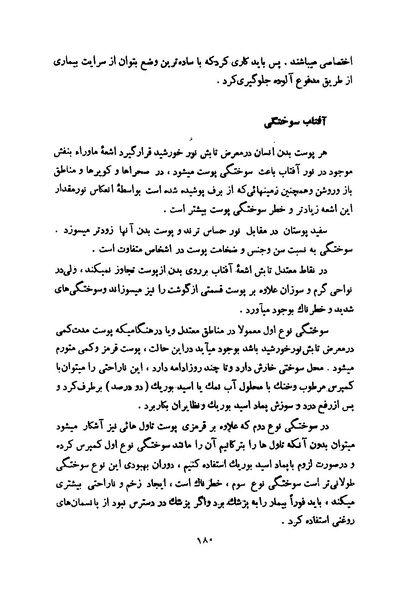 اختصاصی میباشند . پس باید کاری کردکه با ساده‌ترین وضع بتوان از سرایت بیماری
از طریق مدفوع آلوده جلوگیری‌کرد .
آفتاب سوختگی
هر پوست بدن انسان درمعرض تابش نور خورشید قرارگیرد اشعهٔ ماوراء بنفش
موجود در نور آفتاب باعث سوختگی پوست میشود ، در صحراها و کویرها و مناطق
باز وروشن وهمچنین زمینهائی‌که از برف پوشیده شده است بواسطهٔ انعکاس نورمقدار
این اشعه زیادتر و خطر سوختگی پوست بیشتر است .
سفید پوستان در مقابل نور حساس ترند و پوست آنها زودتر میسوزد .
سوختگی به نسبت سن وجنس و ضخامت پوست در اشخاص متفاوت است .
در نقاط معتدل تابش اشعهٔ آفتاب برروی بدن ازپوست تجاوز نمیکند ، ولی‌در
نواحی گرم و سوزان علاوه بر پوست قسمتی ازگوشت را نیز میسوزاند وسوختگی‌های
شدید و خطرناك بوجود میآورد .
سوختگی نوع اول معمولا در مناطق معتدل ویا درهنگامیکه پوست مدت‌کمی
درمعرض تابش‌نورخورشید باشد بوجود میآید دراین حالت ، پوست قرمز وکمی متورم
میشود . محل سوختی خارش دارد وتا چند روزادامه دارد ، این ناراحتی را میتوان‌با
کمپرس مرطوب وخنك با محلول آب نمك یا اسید بوریك ( دو درصد ) برطرف‌کرد و
پس ازرفع درد و سوزش پماد اسید بوریك ونظایران بکاربرد .
در سوختگی نوع دوم که علاوه بر قرمزی پوست تاول هائی نیز آشکار میشود
میتوان بدون آنکه تاول ها را بترکانیم آن را مانند سوختگی نوع اول کمپرس کرده
و درصورت لزوم باپماد اسید بوریك استفاده کنیم ، دوران بهبودی این نوع سوختگی
طولانی‌تر است سوختگی نوع سوم ، خطرناك است ، ایجاد زخم و ناراحتی بیشتری
میکند ، باید فوراً بیمار رابه پزشك برد واگر پزشك در دسترس نبود از پانسمان‌های
روغنی استفاده کرد .
۱۸۰